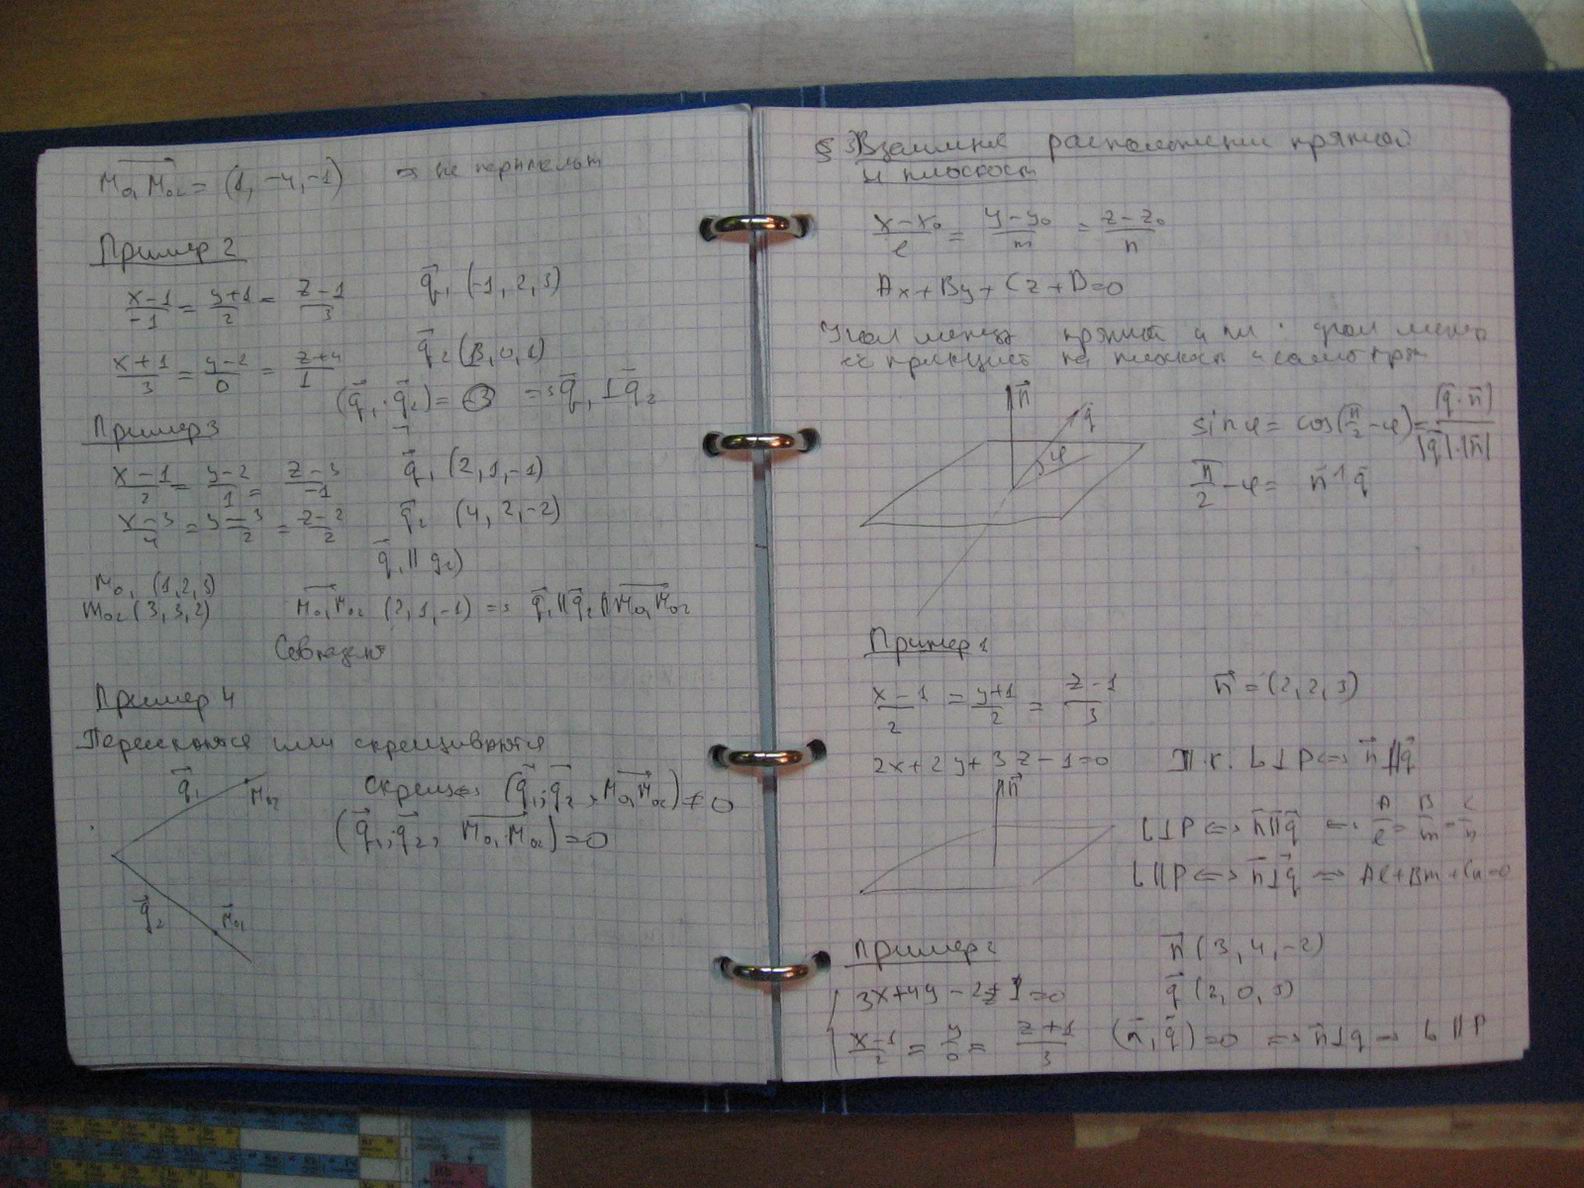 M₀₁M₀₂ = (1, -4, -1) ⇒ не
Пример 2
(x-1)/(-1) = (y+1)/2 = (z-1)/3    q⃗₁ (-1, 2, 3)
(x+1)/3 = (y-2)/0 = (z+4)/1    q⃗₂ (3, 0, 1)
(q⃗₁·q⃗₂) = ⇒ q⃗₁ ⊥ q⃗₂
Пример 3
(x-1)/2 = (y-2)/1 = (z-3)/(-1)    q⃗₁ (2, 1, -1)
(x-3)/4 = (y-3)/2 = (z-2)/2    q⃗₂ (4, 2, -2)
q⃗₁ || q₂)
M₀₁ (1, 2, 3)
M₀₂ (3, 3, 2)    M₀₁M₀₂ (2, 1, -1) ⇒ q⃗₁ || q⃗₂ || M₀₁M₀₂
Совпадают
Пример 4
Пересекаются или скрещиваются
q⃗₁ M₀₂
Скрещ ⇔ (q⃗₁; q⃗₂, M₀₁M₀₂) ≠ 0
(q⃗₁; q⃗₂, M₀₁M₀₂) = 0
q⃗₂ M₀₁
§ 3 Взаимное расположении прямой
и плоскост
(x-x₀)/l = (y-y₀)/m = (z-z₀)/n
Ax + By + Cz + D = 0
Угол между прямой и пл : угол между
ее на плоскость и само пря
n⃗ q⃗ φ
sin φ = cos(π/2 - φ) = |q⃗·n⃗| / |q⃗|·|n⃗|
π/2 - φ = n⃗ ^ q⃗
Пример 1
(x-1)/2 = (y+1)/2 = (z-1)/3    n⃗ = (2, 2, 3)
2x + 2y + 3z - 1 = 0    Т.к. L ⊥ P ⇔ n⃗ || q⃗
n⃗
L ⊥ P ⇔ n⃗ || q⃗ ⇔ A/l = B/m = C/n
L || P ⇔ n⃗ ⊥ q⃗ ⇔ Al + Bm + Cn = 0
Пример 2    n⃗ (3, 4, -2)
3x + 4y - 2z + 1 = 0    q⃗ (2, 0, 3)
(x-1)/2 = y/0 = (z+1)/3    (n⃗, q⃗) = 0 ⇒ n⃗ ⊥ q ⇒ L || P